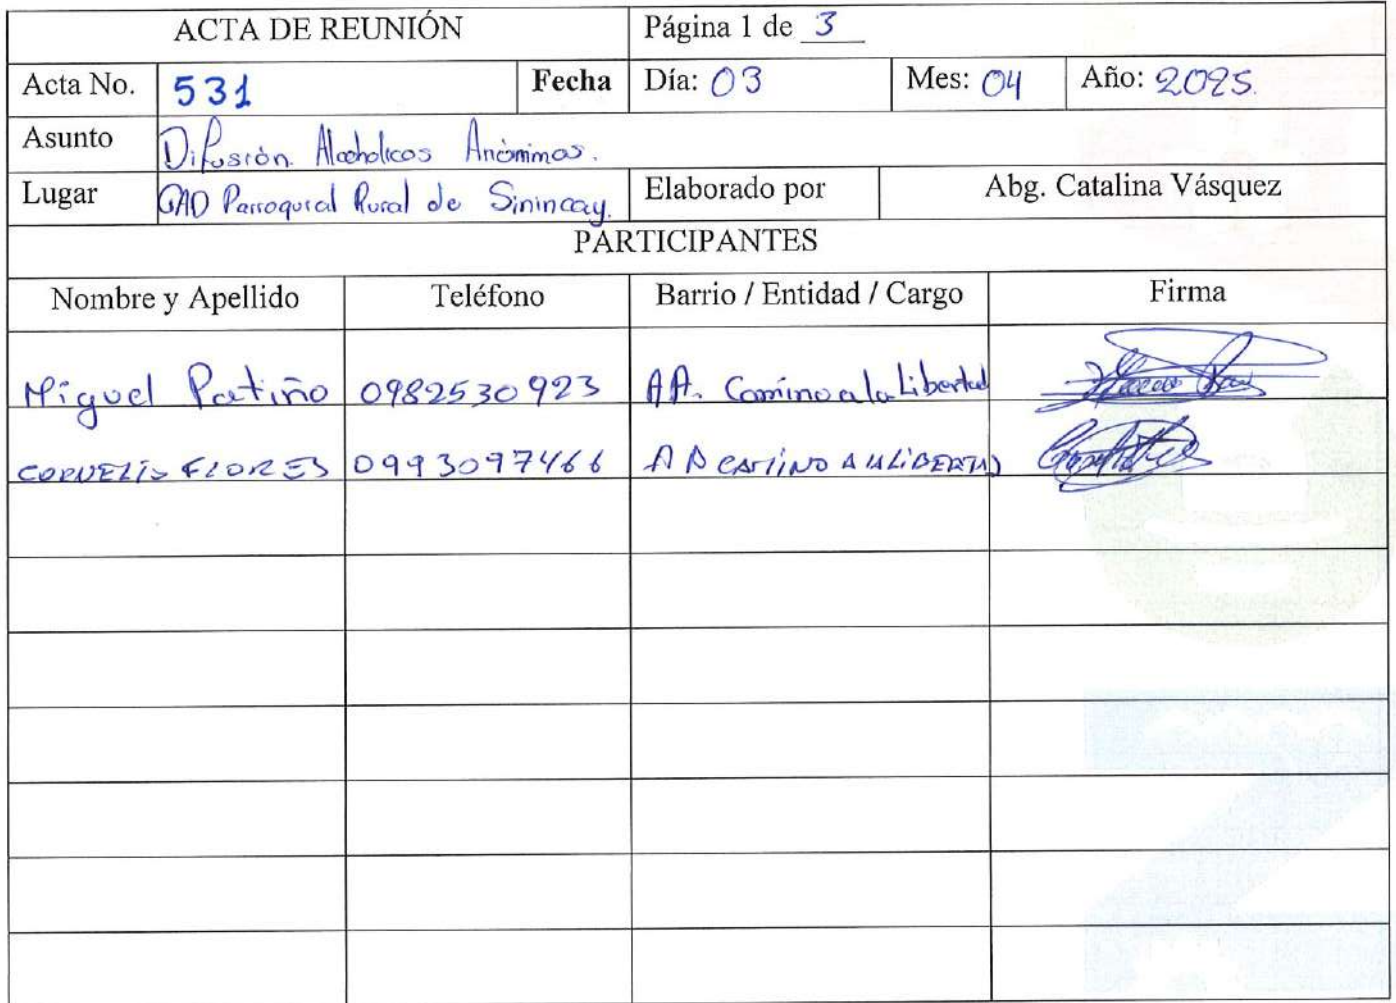 ACTA DE REUNIÓN Página 1 de 3
Acta No. 531 Fecha Día: 03 Mes: 04 Año: 2025.
Asunto Difusión Alcoholicos Anónimos.
Lugar GAD Parroquial Rural de Sinincay. Elaborado por Abg. Catalina Vásquez
PARTICIPANTES
Nombre y Apellido Teléfono Barrio / Entidad / Cargo Firma
Miguel Patiño 0982530923 AA. Camino a la Libertad
CORNELIO FLORES 0993097466 AA CAMINO A LA LIBERTAD